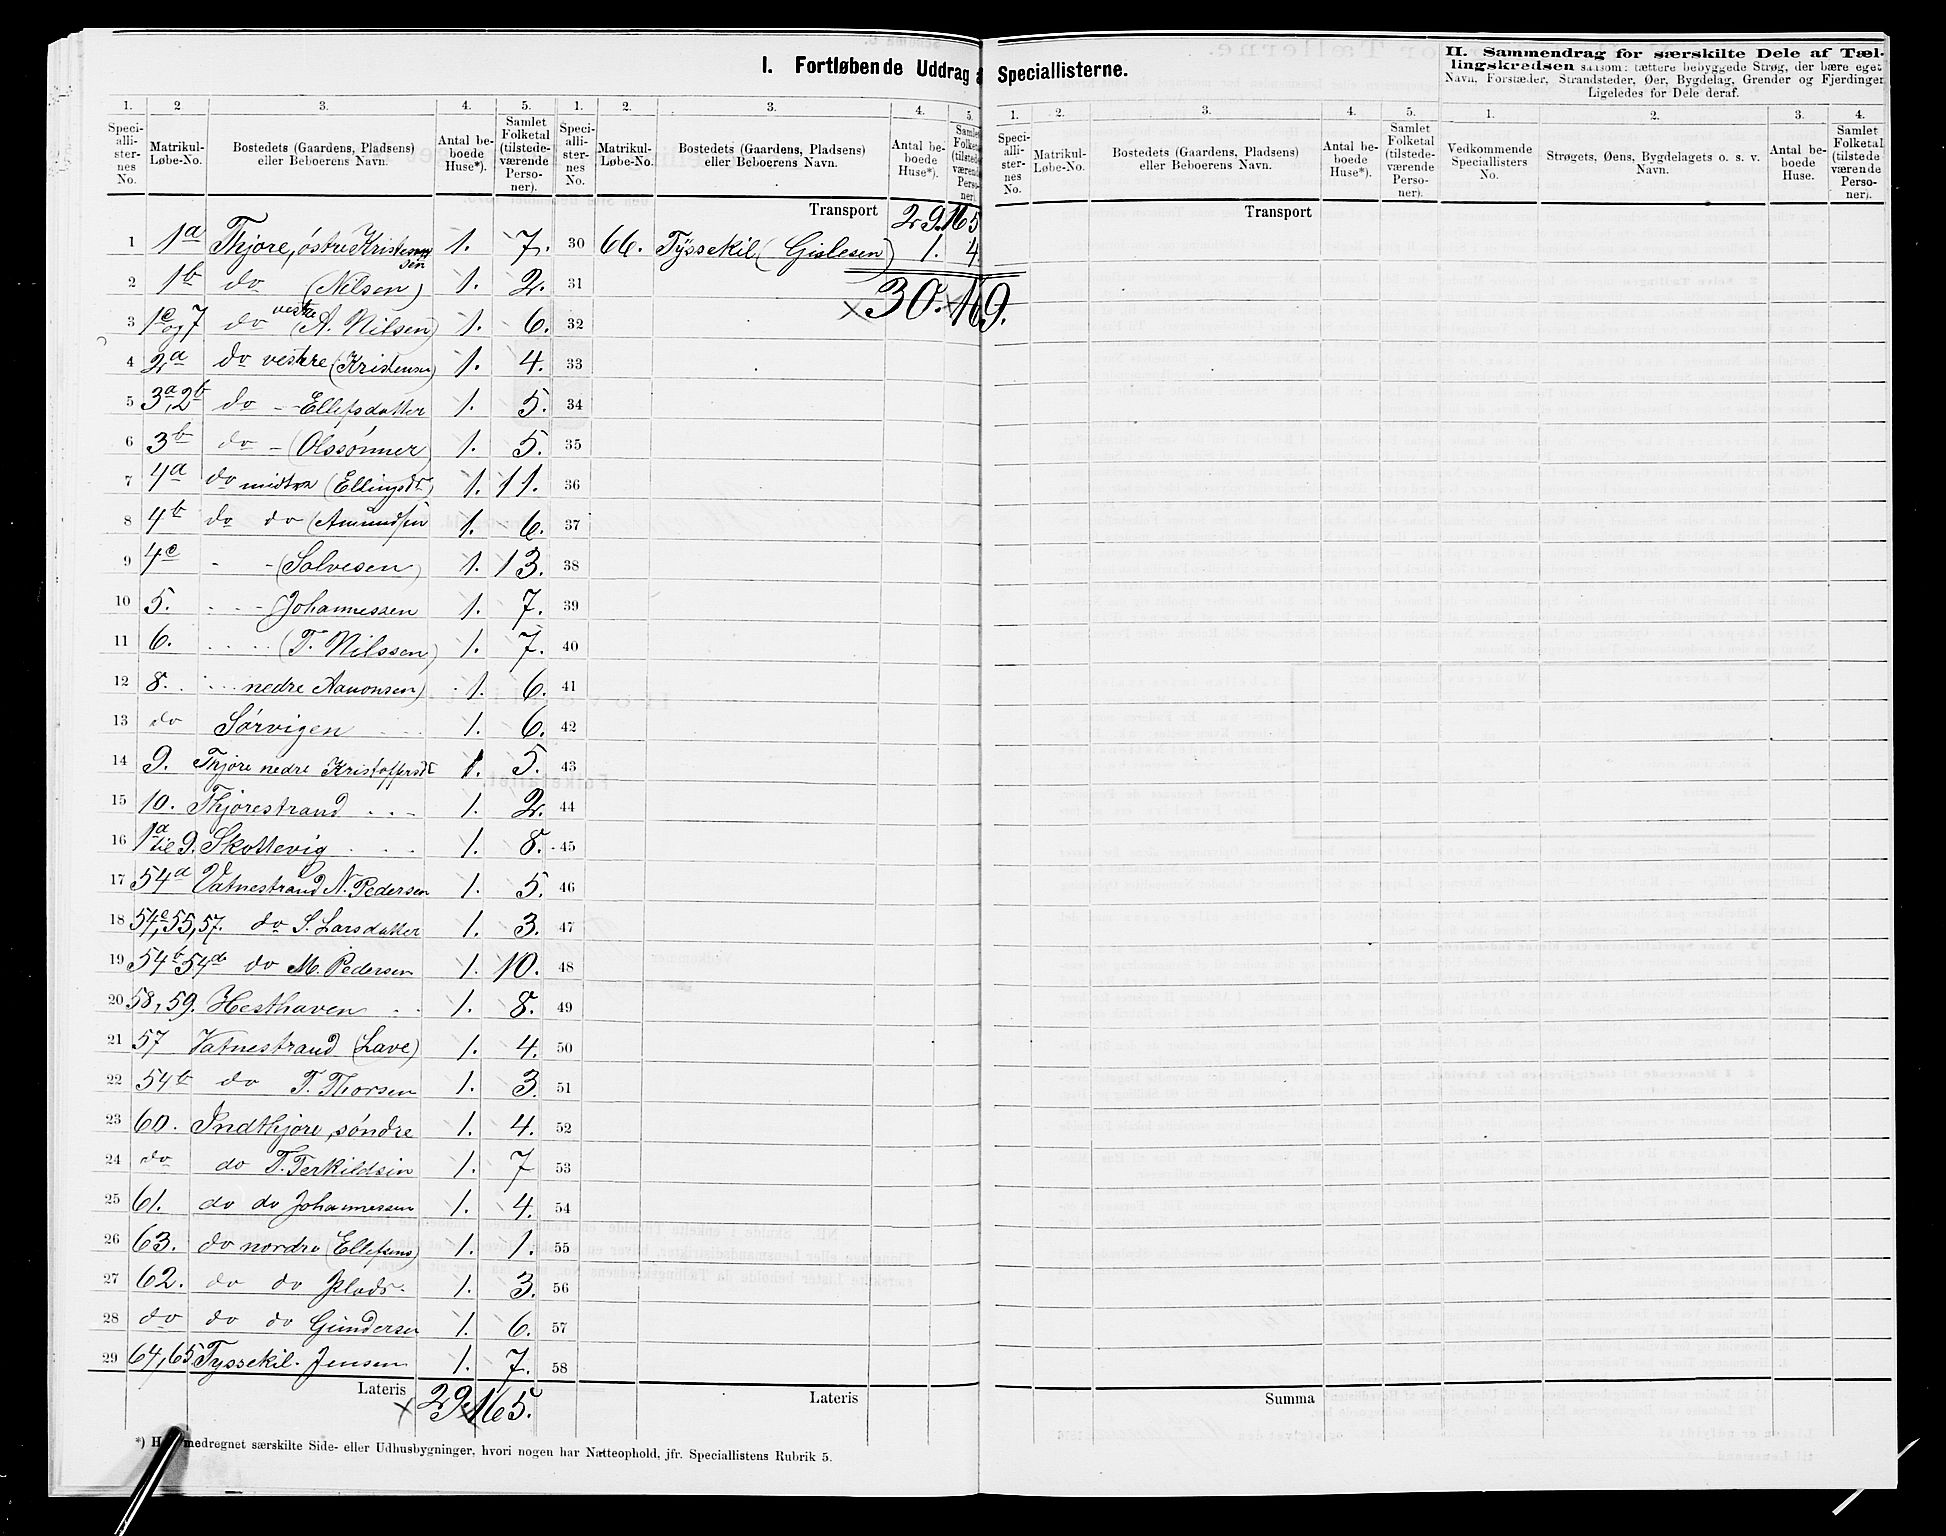 I. Fortløbende Uddrag a
1. 2. 3. 4. 5. 1. 2. 3. 4. 5.
Speciallisternes No. Matrikul-Løbe-No. Bostedets (Gaardens, Pladsens) eller Beboerens Navn. Antal beboede Huse*). Samlet Folketal (tilstedeværende Personer). Speciallisternes No. Matrikul-Løbe-No. Bostedets (Gaardens, Pladsens) eller Beboerens Navn. Antal beboede Huse*). Samlet Folketal (tilstedeværende Personer).
Transport 29. 165
1 1a Thjøre, østre Kristensen 1. 7. 30 66. Tyssekil (Gislesen) 1. 4
2 1b do (Nelsen) 1. 2. 31 30. 169.
3 1c og 7 do vestre (A. Nilsen) 1. 6. 32
4 2a do vestere (Kristensen) 1. 4. 33
5 3a, 2b do - - Ellefsdatter 1. 5. 34
6 3b do - (Olssønner) 1. 5. 35
7 4a do midtre (Ellingsdr) 1. 11. 36
8 4b do do (Amundsen 1. 6. 37
9 4c - - (Salvesen) 1. 13. 38
10 5. - - - (Johannessen 1. 7. 39
11 6. . . . . (T. Nilssen) 1. 7. 40
12 8. . . . nedre Aanonsen) 1. 6. 41
13 do Sørvigen 1. 6. 42
14 9. Thjøre nedre Kristoffersdr 1. 5. 43
15 10. Thjørestrand . . - 1. 2. 44
16 1a til 9. Skottevig . . . 1. 8. 45
17 54a Vatnestrand N. Pedersen 1. 5. 46
18 54c, 55, 57. do S. Larsdatter 1. 3. 47
19 54b 54d do M. Pedersen 1. 10. 48
20 58, 59. Hesthaven . . 1. 8. 49
21 57 Vatnestrand (Lave) 1. 4. 50
22 54b do T. Thorsen 1. 3. 51
23 60. Indthjøre, søndre 1. 4. 52
24 do do T. Terkildsen 1. 7 53
25 61. do do Johannessen 1. 4. 54
26 63. do nordre (Ellefsens) 1. 1. 55
27 62. do do Plads. 1. 3. 56
28 do do do Gundersen 1. 6. 57
29 64, 65 Tyssekil. Jensen 1. 7. 58
Lateris 29. 165. Lateris
*) H medregnet særskilte Side- eller Udhusbygninger, hvori nogen har Natteophold, jfr. Speciallistens Rubrik 5.
Speciallisterne.
II. Sammendrag for særskilte Dele af Tæl-
lingskredsen saasom: tættere bebyggede Strøg, der bære eget
Navn, Forstæder, Strandsteder, Øer, Bygdelag, Grender og Fjerdinger
Ligeledes for Dele deraf.
1. 2. 3. 4. 5. 1. 2. 3. 4.
Speciallisternes No. Matrikul-Løbe-No. Bostedets (Gaardens, Pladsens) eller Beboerens Navn. Antal beboede Huse*). Samlet Folketal (tilstedeværende Personer). Vedkommende Speciallisters No. Strøgets, Øens, Bygdelagets o. s. v. Navn. Antal beboede Huse. Samlet Folketal (tilstedeværende Personer).
Transport
Summa